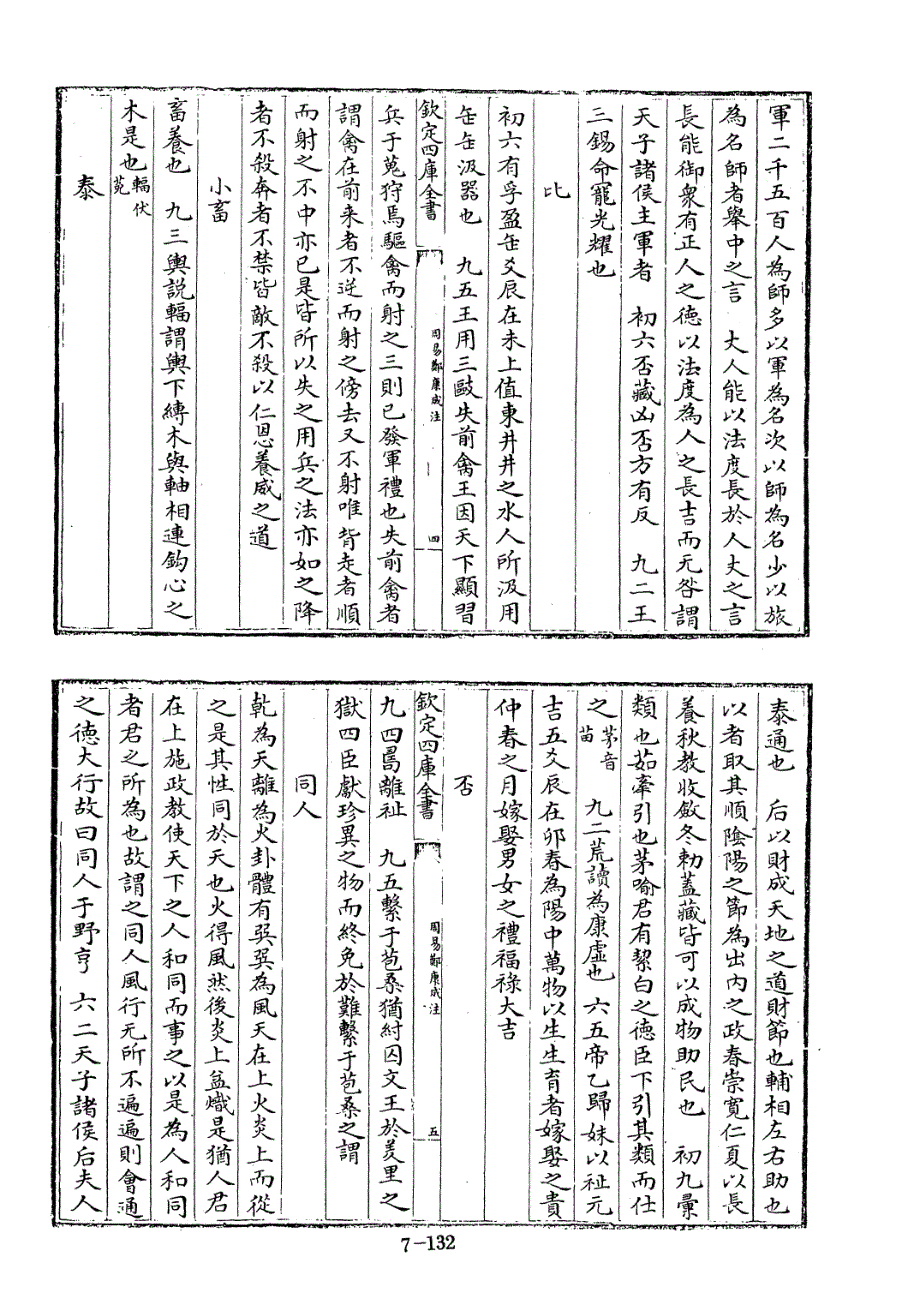 軍二千五百人為師多以軍為名次以師為名少以旅
為名師者舉中之言　丈人能以法度長於人丈之言
長能御衆有正人之德以法度為人之長吉而无咎謂
天子諸侯主軍者　初六否藏凶否方有反　九二王
三錫命寵光耀也
比
初六有孚盈缶爻辰在未上值東井井之水人所汲用
缶缶汲器也　九五王用三敺失前禽王因天下顯習
欽定四庫全書
周易鄭康成注
四
兵于蒐狩焉驅禽而射之三則已發軍禮也失前禽者
謂禽在前来者不逆而射之傍去又不射唯背走者順
而射之不中亦已是皆所以失之用兵之法亦如之降
者不殺奔者不禁皆敵不殺以仁恩養威之道
小畜
畜養也　九三輿説輻謂輿下縛木與軸相連鈎心之
木是也輻伏菟
泰
泰通也　后以財成天地之道財節也輔相左右助也
以者取其順陰陽之節為出內之政春崇寛仁夏以長
養秋教收斂冬勅蓋藏皆可以成物助民也　初九彙
類也茹牽引也茅喻君有絜白之德臣下引其類而仕
之茅音苗　九二荒讀為康虛也　六五帝乙歸妹以祉元
吉五爻辰在卯春為陽中萬物以生生育者嫁娶之貴
仲春之月嫁娶男女之禮福祿大吉
否
欽定四庫全書
周易鄭康成注
五
九四𠷎離祉　九五繫于苞桑猶紂囚文王於羑里之
獄四臣獻珍異之物而終免於難繫于苞桑之謂
同人
乾為天離為火卦體有巽巽為風天在上火炎上而從
之是其性同於天也火得風然後炎上益熾是猶人君
在上施政教使天下之人和同而事之以是為人和同
者君之所為也故謂之同人風行无所不遍遍則會通
之德大行故曰同人于野亨　六二天子諸侯后夫人
7-132